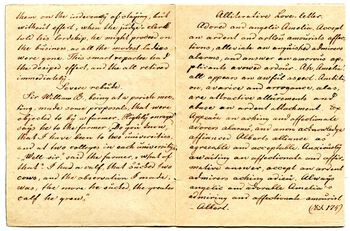 them on the indecency of staying, but
without effect, when the judge's clerk
told his lordship, he might proceed on
the business, as all the modest ladies
were gone. This smart repartee had
the desired effect, and the all retired
immediately.
Severe rebuke.
Sir William B. being at a parish meeting,
made some proposals, that were
objected to by a farmer. Highly enraged
says he to the farmer. "Do you know,
that I have been to two universities,
and at two colleges in each university."
"Well sir," said the farmer, "what of
that? I had a calf that sucked two
cows, and the observation I made
was, the more he sucked the greater
calf he grew."
Alliterative Love letter.
Adored and angelic Amelia. Accept
an ardent and artless amourist's affections,
alleviate an anguished admirer's
alarms, and answer an amorous
applicant's avowed ardor. Ah, Amelia!
all appears an awful aspect. Ambition,
avarice and arrogance, alas,
are attractive allurements and
abuse an ardent attachment.
Appease an aching and affectionate
adorer's alarms, and anon acknowledge
affianced Albert's alliance as
agreeable and acceptable. Anxiously
awaiting an affectionate and affirmative
answer, accept an ardent
admirer's aching adieu. Always
angelic and adorable Amelia's
admiring and affectionate amourist
Albert.